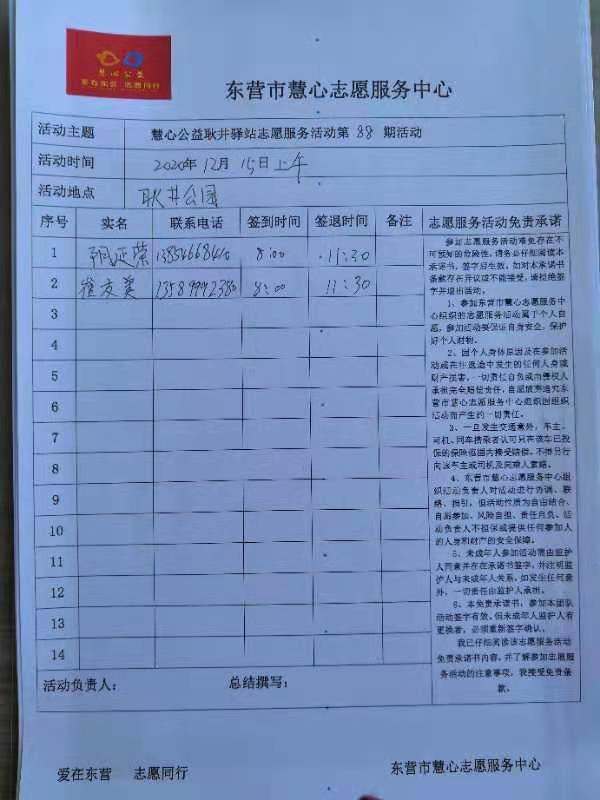 慧心公益
爱在东营 志愿同行
东营市慧心志愿服务中心
活动主题 慧心公益耿井驿站志愿服务活动第 88 期活动
活动时间 2020年12月15日上午
活动地点 耿井公园
序号 实名 联系电话 签到时间 签退时间 备注 志愿服务活动免责承诺
1 8:00 11:30
2 崔友美 13589992380 8:00 11:30
3
4
5
6
7
8
9
10
11
12
13
14
参加志愿服务活动难免存在不
可预知的危险性，请务必仔细阅读本
承诺书，签字后生效，如对本承诺书
条款存在异议或不能接受，请拒绝签
字并退出活动。
1、参加东营市慧心志愿服务中
心组织的志愿服务活动属于个人自
愿，参加活动要保证自身安全，保护
好个人财物。
2、因个人身体原因及在参加活
动或在往返途中发生的任何人身或
财产损害，一切责任自负或由责权人
承担完全赔偿责任，自愿放弃追究东
营市慧心志愿服务中心组织因组织
活动而产生的一切责任。
3、一旦发生交通意外，车主、
司机、同车搭乘者认可只在该车已投
保的保险范围内接受赔偿，不得另行
向该车主或司机及同乘人索赔。
4、东营市慧心志愿服务中心组
织活动负责人对活动进行协调、联
络、指引，但活动性质为自由结合、
自愿参加、风险自担、责任自负，活
动负责人不担保或提供任何参加人
的人身和财产的安全保障。
5、未成年人参加活动需由监护
人同意并在在承诺书签字，并注明监
护人与未成年人关系，如发生任何意
外，一切责任由监护人承担。
6、本免责承诺书，参加本团队
活动签字有效，但未成年人监护人有
更换者，必须重新签字确认。
我已仔细阅读该志愿服务活动
免责承诺书内容，并了解参加志愿服
务活动的注意事项，我接受免责条
款。
活动负责人： 总结撰写：
爱在东营 志愿同行 东营市慧心志愿服务中心